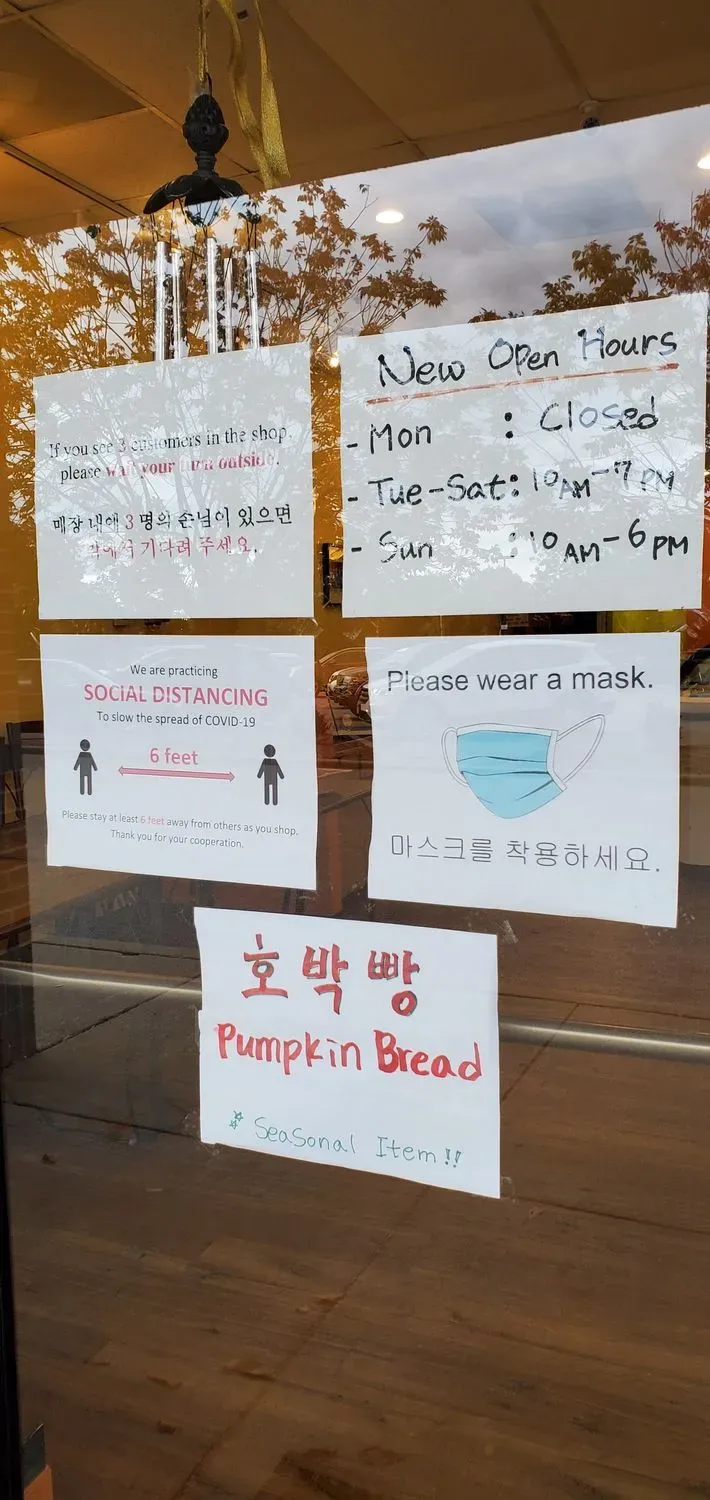 If you see 3 customers in the shop,
please wait your turn outside.
매장 내에 3 명의 손님이 있으면
밖에서 기다려 주세요.
New Open Hours
- Mon : Closed
- Tue-Sat: 10AM-7PM
- Sun : 10AM-6PM
We are practicing
SOCIAL DISTANCING
To slow the spread of COVID-19
6 feet
Please stay at least 6 feet away from others as you shop.
Thank you for your cooperation.
Please wear a mask.
마스크를 착용하세요.
호박빵
Pumpkin Bread
Seasonal Item!!